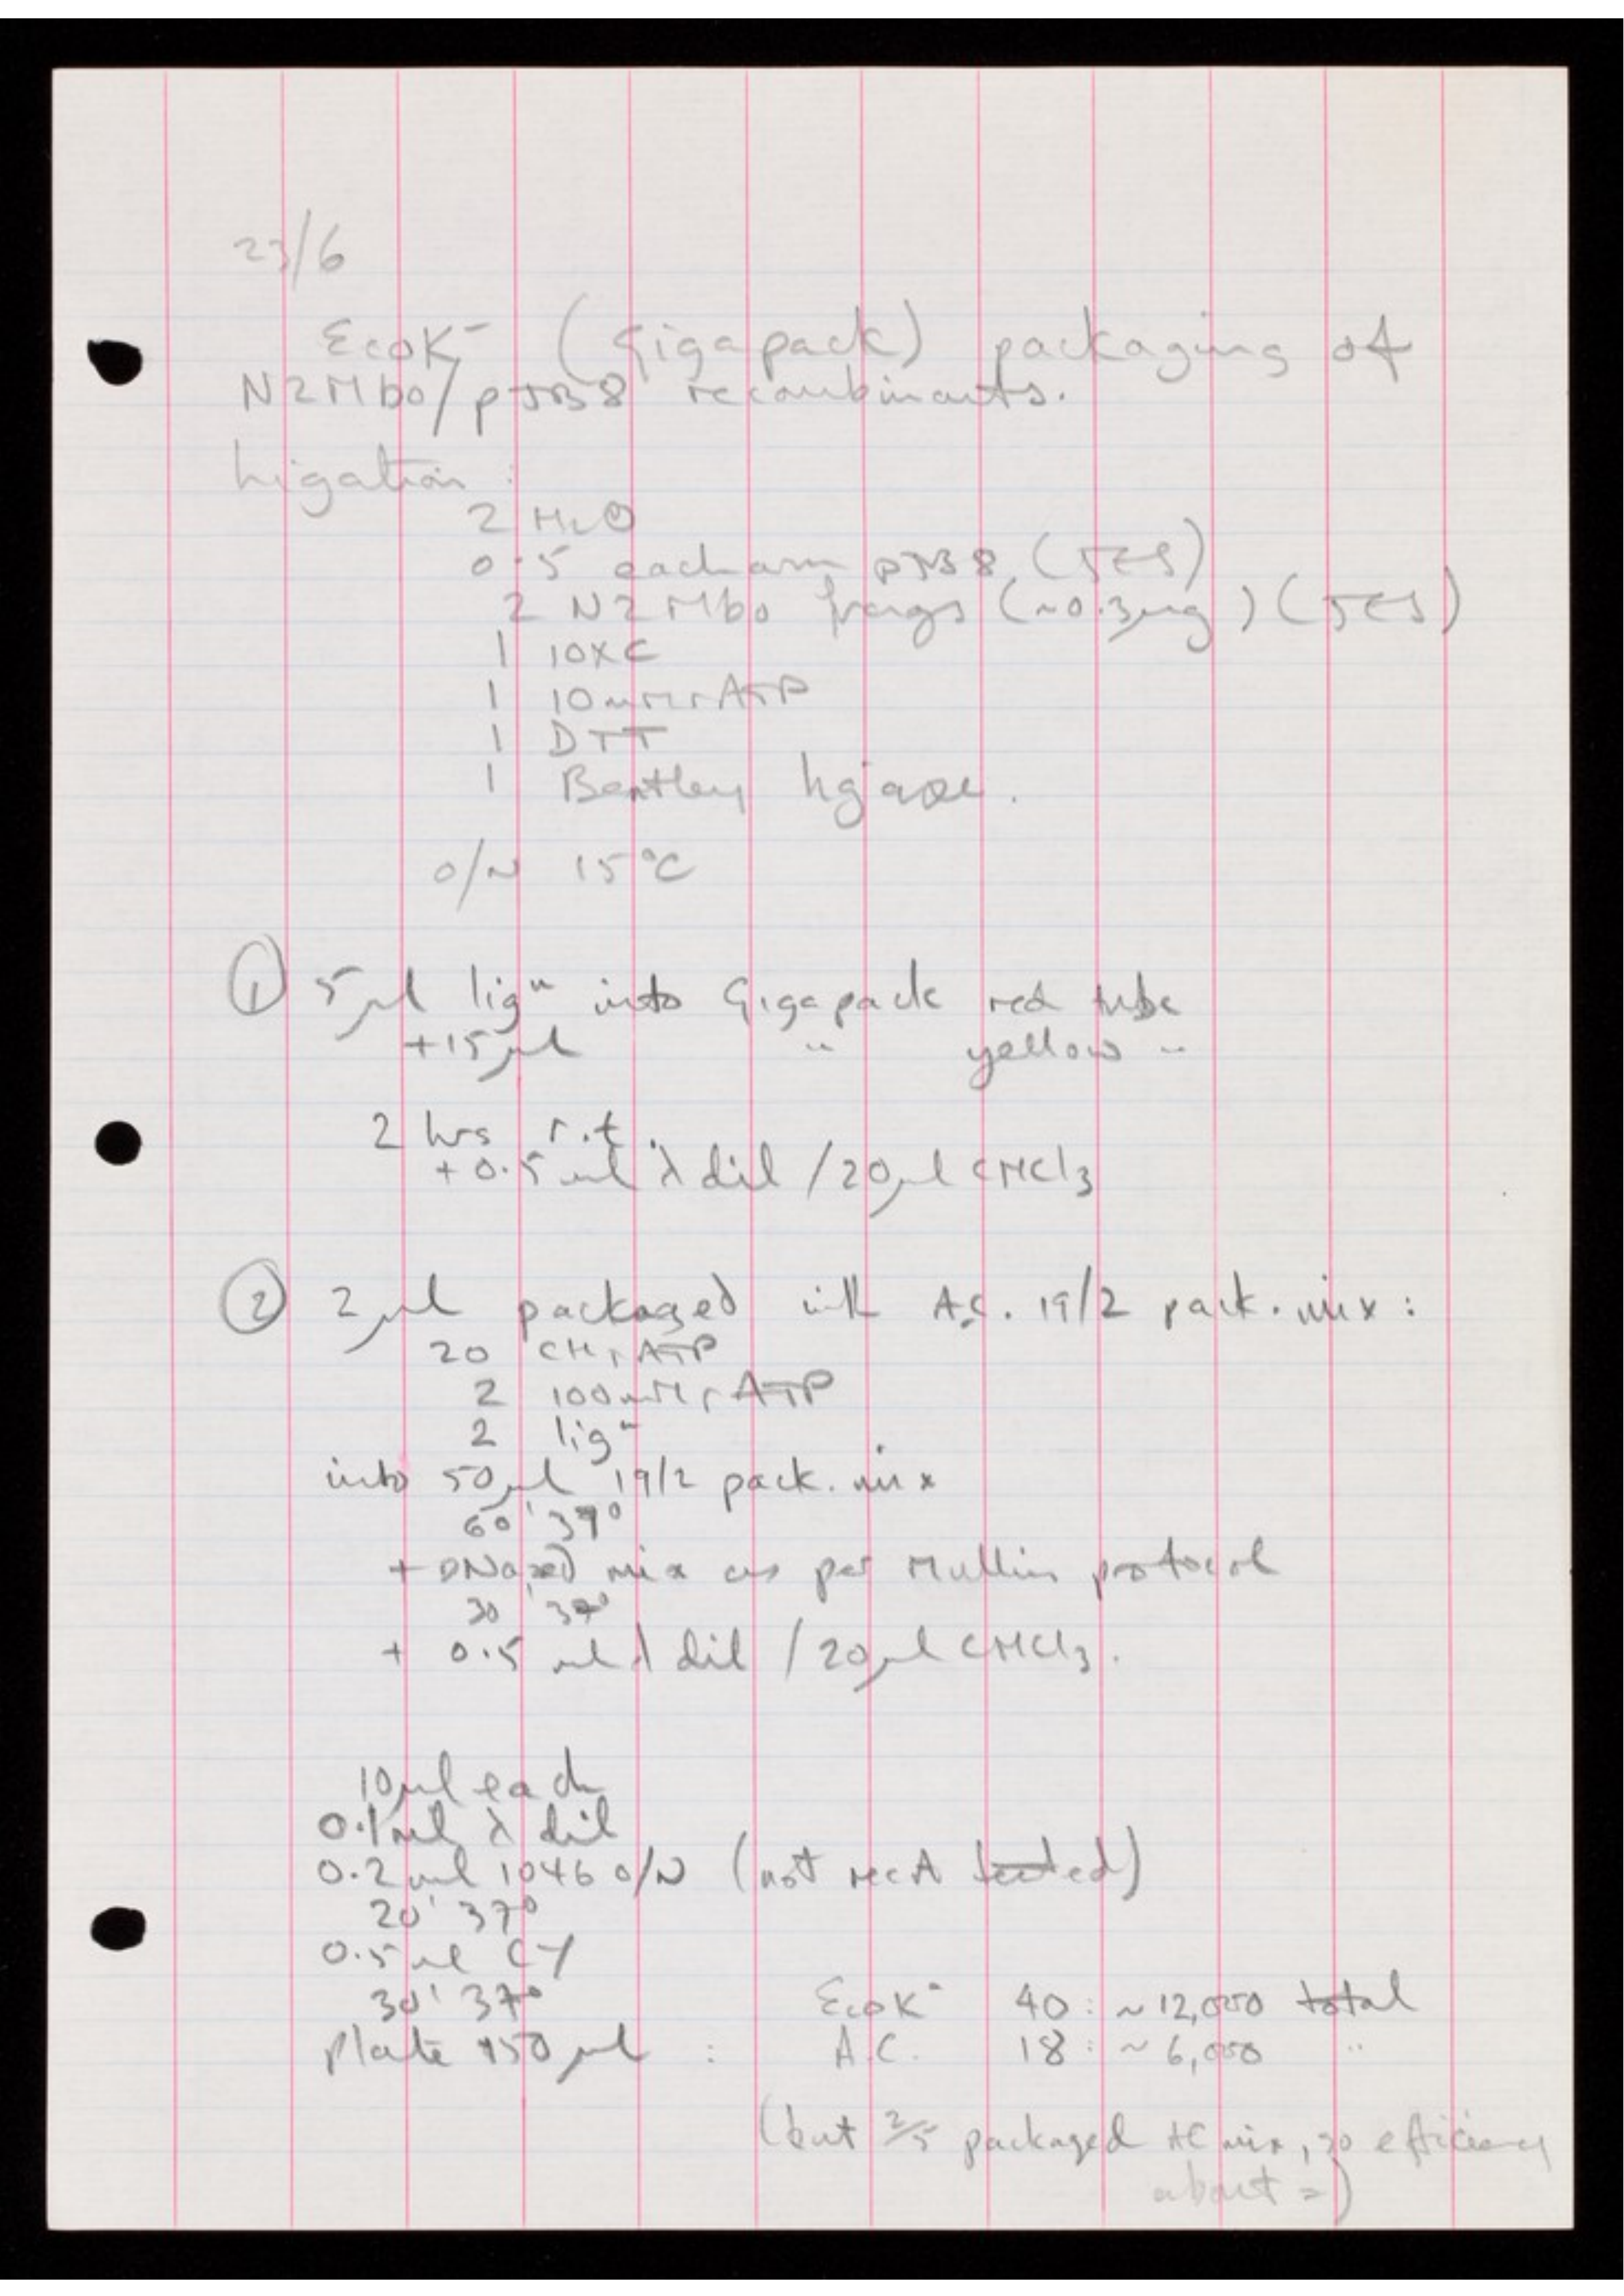 23/6
EcoK⁻ (Gigapack) packaging of
N2Mbo/pJB8 recombinants.
Ligation :
2 H₂O
0.5 each arm pJB8 (5ES)
2 N2Mbo frags (~0.3µg) (5ES)
1 10xC
1 10mM rATP
1 DTT
1 Bentley ligase.
o/N 15°C
① 5µl ligⁿ into Gigapack red tube
+15µl " yellow "
2 hrs r.t.
+0.5ml λ dil /20µl CHCl₃
② 2µl packaged with A.C. 19/2 pack. mix :
20 CH, ATP
2 100mM rATP
2 ligⁿ
into 50µl 19/2 pack. mix
60' 37°
+ DNased mix as per Mullins protocol
30' 37°
+ 0.5 ml λ dil /20µl CHCl₃.
10µl each
0.1ml λ dil
0.2ml 1046 o/N (not recA tested)
20' 37°
0.5ml CY
30' 37°
EcoK⁻ 40 : ~12,000 total
Plate 150µl : A.C. 18 : ~6,000 "
(but 2/5 packaged AC mix, so efficiency
about =)